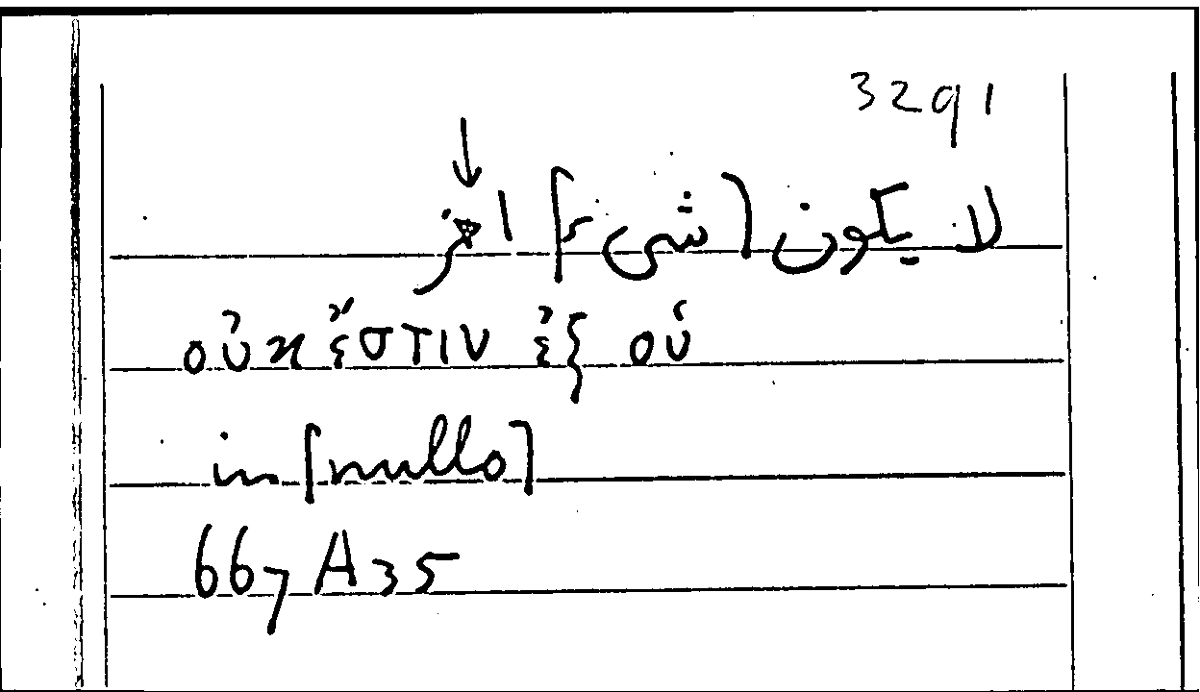 3291
لا يكون [شيء] آخر
οὐκ ἔστιν ἐξ οὐ
in [nullo]
667 A 35